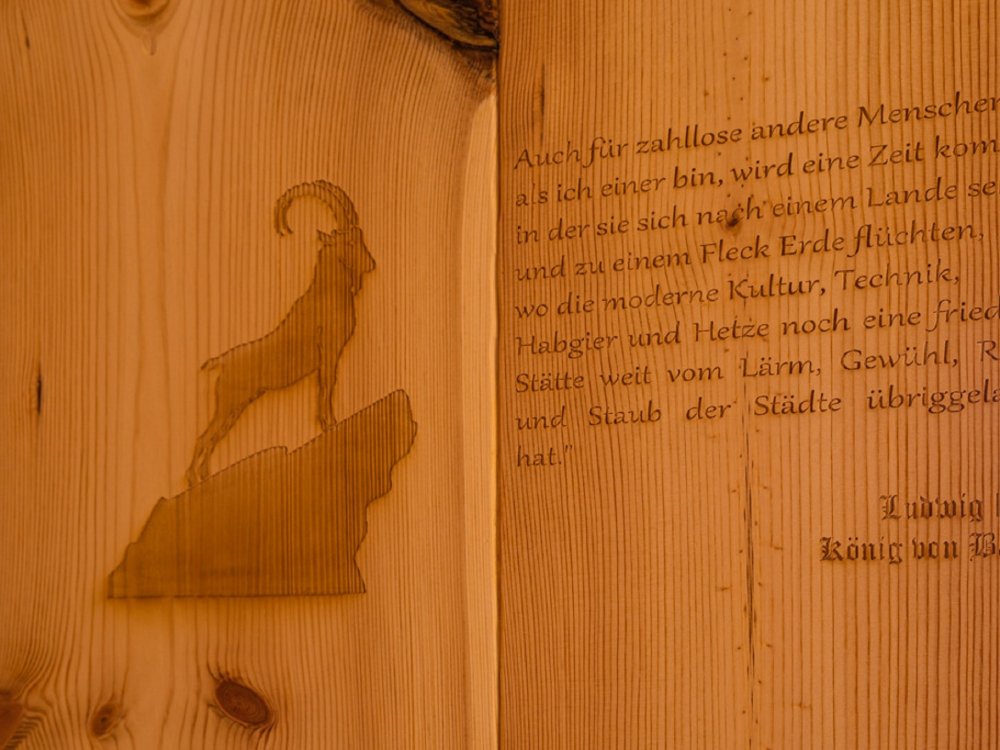 Auch für zahllose andere Menschen
als ich einer bin, wird eine Zeit kom
in der sie sich nach einem Lande se
und zu einem Fleck Erde flüchten,
wo die moderne Kultur, Technik,
Habgier und Hetze noch eine fried
Stätte weit vom Lärm, Gewühl, R
und Staub der Städte übriggela
hat."
Ludwig
König von B